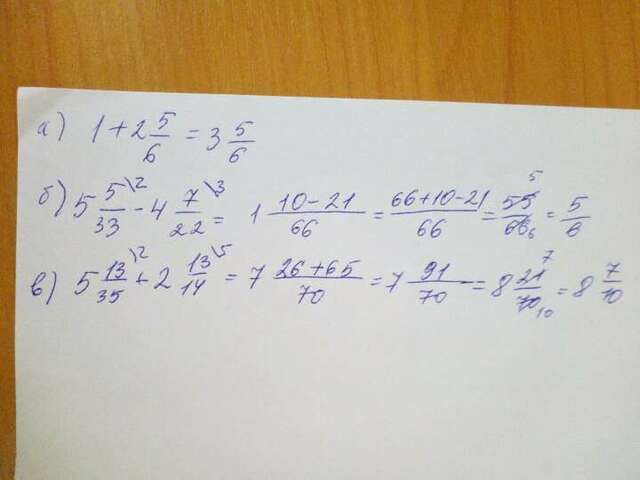 а) 1 + 2 5/6 = 3 5/6
б) 5 5/33 \2 - 4 7/22 \3 = 1 (10 - 21)/66 = (66 + 10 - 21)/66 = 55/66 5 6 = 5/6
в) 5 13/35 \2 + 2 13/14 \5 = 7 (26 + 65)/70 = 7 91/70 = 8 21/70 7 10 = 8 7/10